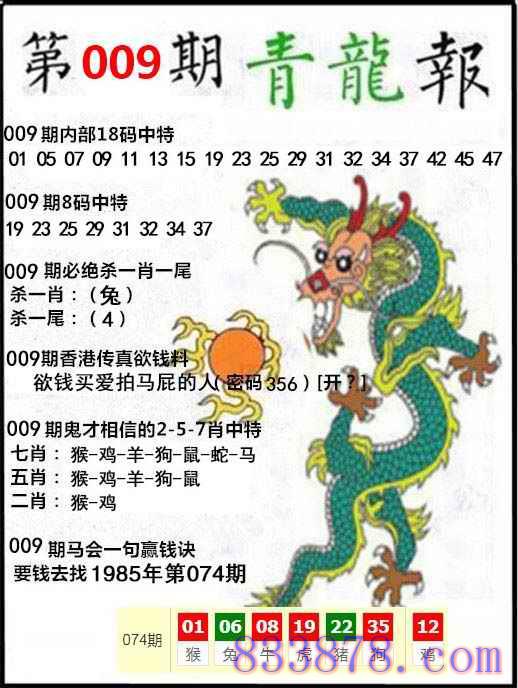 第009期青龍報
009期内部18码中特
01 05 07 09 11 13 15 19 23 25 29 31 32 34 37 42 45 47
009期8码中特
19 23 25 29 31 32 34 37
009 期必绝杀一肖一尾
杀一肖：（兔）
杀一尾：（4）
009期香港传真欲钱料
欲钱买爱拍马屁的人(密码356）[开？]
009期鬼才相信的2-5-7肖中特
七肖：猴-鸡-羊-狗-鼠-蛇-马
五肖：猴-鸡-羊-狗-鼠
二肖：猴-鸡
009 期马会一句赢钱诀
要钱去找1985年第074期
074期 01 06 08 19 22 35 12
猴 兔 牛 虎 猪 狗 鸡
833878.com